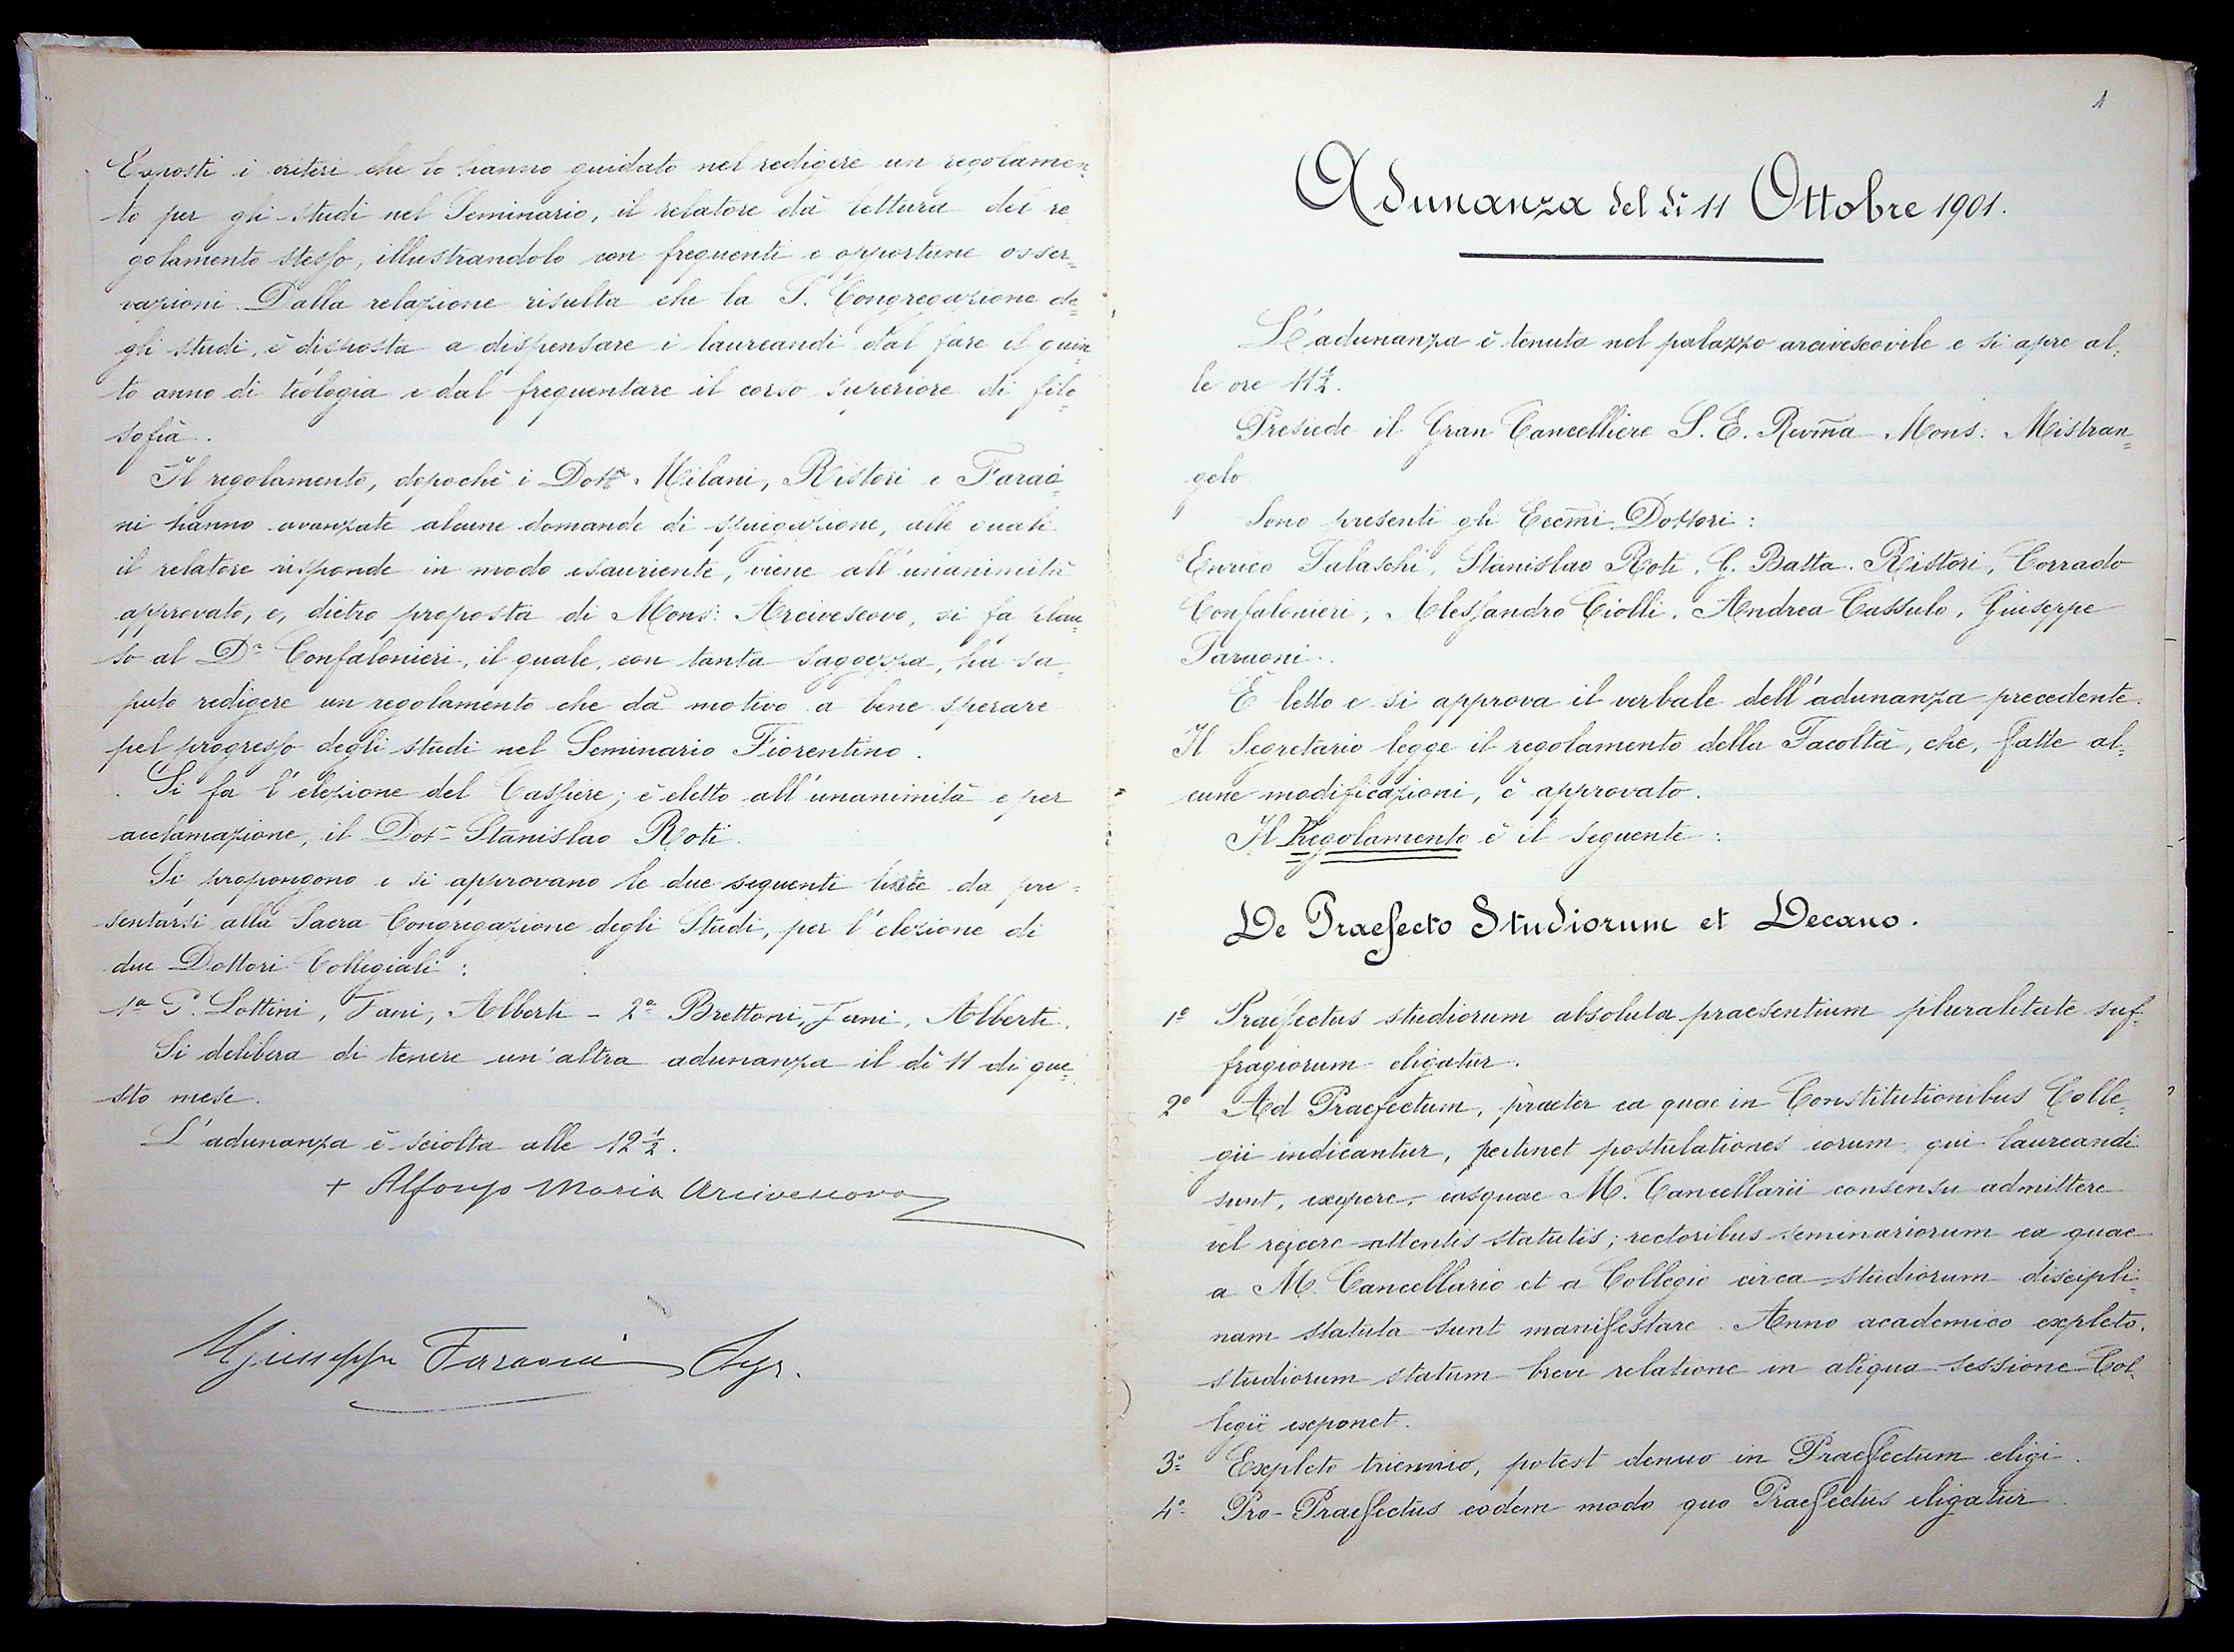 Esposti i criteri che lo hanno guidato nel redigere un regolamen=
to per gli studi nel Seminario, il relatore dà lettura del re=
golamento stesso, illustrandolo con frequenti e opportune osser=
vazioni. Dalla relazione risulta che la S. Congregazione de=
gli studi, è disposta a dispensare i laureandi dal fare il quin=
to anno di teologia e dal frequentare il corso superiore di filo=
sofia.
Il regolamento, dopochè i Dott. Milani, Ristori e Farao=
ni hanno avanzate alcune domande di spiegazione, alle quali
il relatore risponde in modo esauriente, viene all'unanimità
approvato, e, dietro proposta di Mons: Arcivescovo, si fa plau=
so al Dr. Confalonieri, il quale, con tanta saggezza, ha sa=
puto redigere un regolamento che dà motivo a bene sperare
pel progresso degli studi nel Seminario Fiorentino.
Si fa l'elezione del Cassiere; è eletto all'unanimità e per
acclamazione, il Dot. Stanislao Roti.
Si propongono e si approvano le due seguenti liste da pre=
sentarsi alla Sacra Congregazione degli Studi, per l'elezione di
due Dottori Collegiali:
1a P. Lottini, Fani, Alberti - 2a Brettoni, Fani, Alberti.
Si delibera di tenere un'altra adunanza il dì 11 di que=
sto mese.
L'adunanza è sciolta alle 12 1/2.
+ Alfonso Maria Arcivescovo
Giuseppe Faraoni Segr.
1
Adunanza del dì 11 Ottobre 1901.
L'adunanza è tenuta nel palazzo arcivescovile e si apre al=
le ore 11 1/2.
Presiede il Gran Cancelliere S. E. Revm̃a Mons: Mistran=
gelo
Sono presenti gli Eccm̃i Dottori:
Enrico Tulaschi, Stanislao Roti, G. Batta. Ristori, Corrado
Confalonieri, Alessandro Ciolli, Andrea Cassulo, Giuseppe
Faraoni.
È letto e si approva il verbale dell'adunanza precedente.
Il Segretario legge il regolamento della Facoltà, che, fatte al=
cune modificazioni, è approvato.
Il Regolamento è il seguente:
De Praefecto Studiorum et Decano.
1º Praefectus studiorum absoluta praesentium pluralitate suf=
fragiorum eligatur.
2º Ad Praefectum, praeter ea quae in Constitutionibus Colle=
gii indicantur, pertinet postulationes eorum qui laureandi
sunt, excipere, easque M. Cancellarii consensu admittere
vel rejicere attentis statutis; rectoribus seminariorum ea quae
a M. Cancellario et a Collegio circa studiorum discipli=
nam statuta sunt manifestare. Anno academico expleto,
studiorum statum brevi relatione in aliqua sessione Col=
legii exponet.
3º Expleto triennio, potest denuo in Praefectum eligi.
4º Pro-Praefectus eodem modo quo Praefectus eligatur.